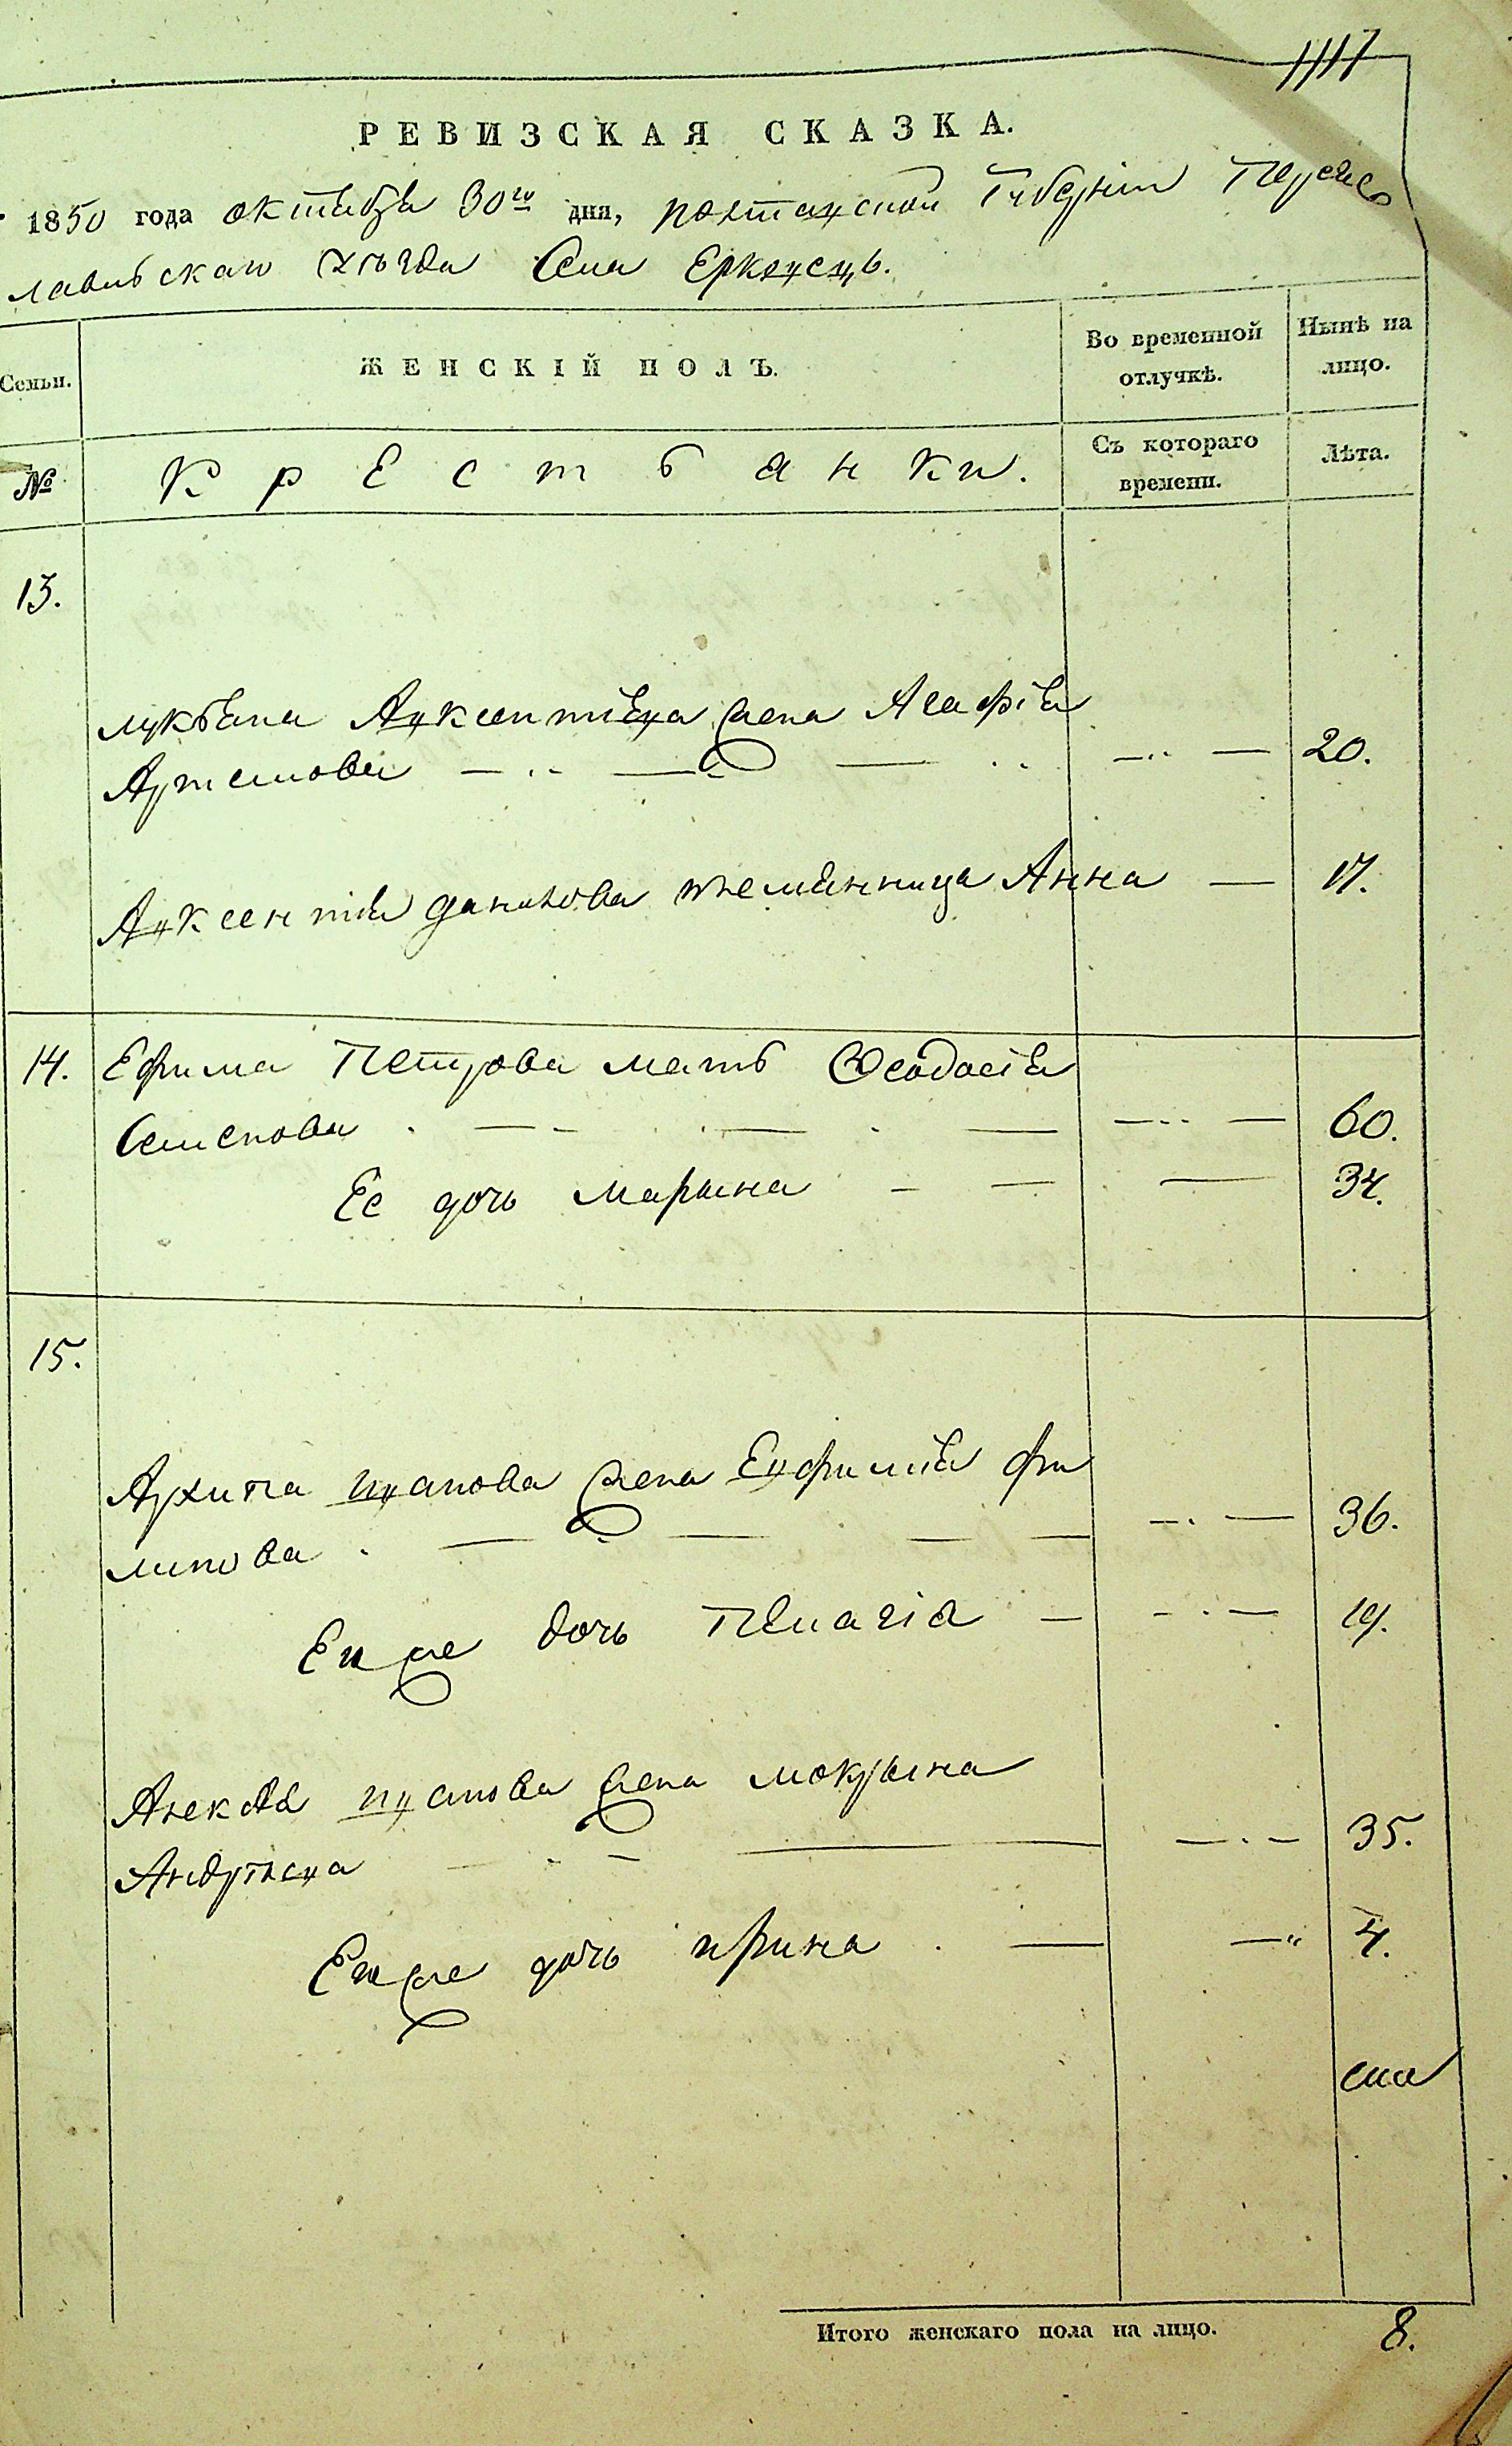 РЕВИЗСКАЯ СКАЗКА.
1850 года октября 30го дня, полтавской Губернiи Переяс
лавьскаго уѣзда Села Ерковецъ.
Семьи. ЖЕНСКІЙ ПОЛЪ. Во временной отлучкѣ. Нынѣ на лицо.
№ Крестьянки. Съ котораго времени. Лѣта.
13.
лукьяна Авксентiева жена Агафiя
Артемова 20.
Авксентiя данилова племянница Анна 17.
14. Ефима Петрова мать Феодосiя
Семенова 60.
Ее дочь марына 34.
15.
Архипа иванова жена Евфимiя фи
липова 36.
Ей же дочь Пелагiя 19.
Алексѣя иванова жена мокрына
Андрѣева 35.
Ей же дочь ирина 4.
Итого женскаго пола на лицо. 8.